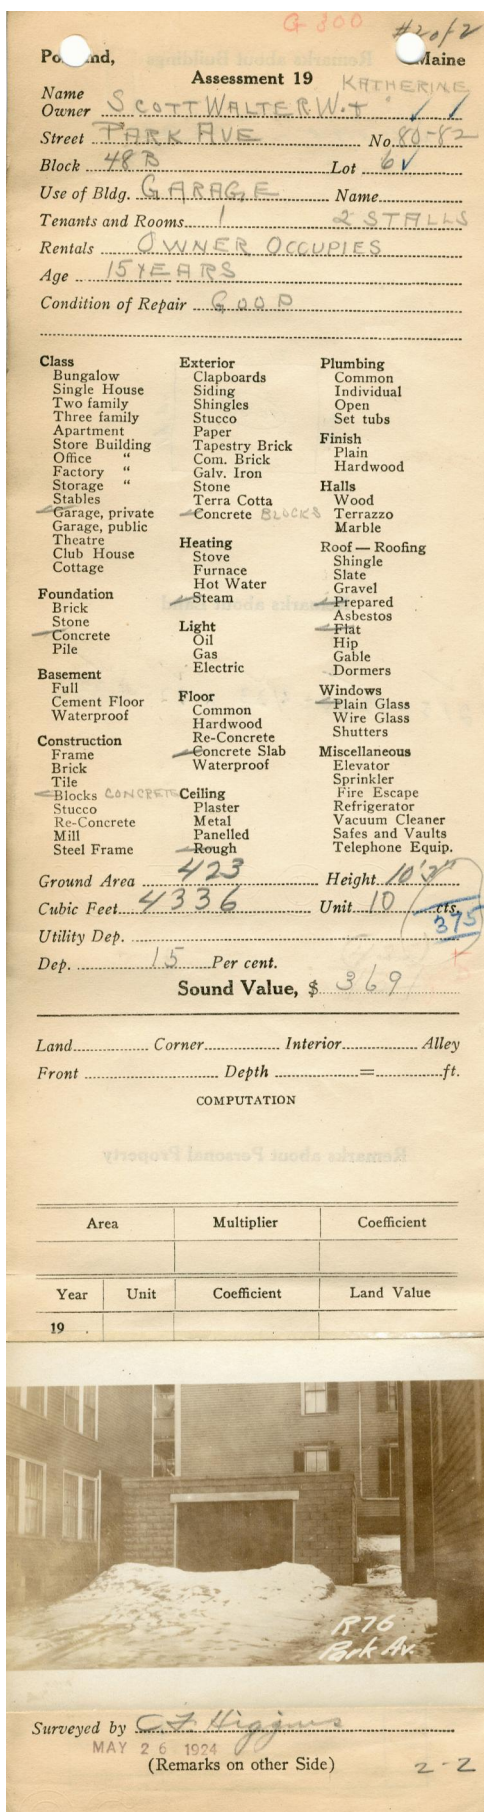 G 800 #2 of 2
Po nd, Maine
Assessment 19 KATHERINE
Name
Owner SCOTT WALTER W. +
Street PARK AVE No. 80-82
Block 48B Lot 6
Use of Bldg. GARAGE Name
Tenants and Rooms 1 2 STALLS
Rentals OWNER OCCUPIES
Age 15 YEARS
Condition of Repair GOOD
Class
Bungalow
Single House
Two family
Three family
Apartment
Store Building
Office "
Factory "
Storage "
Stables
Garage, private
Garage, public
Theatre
Club House
Cottage
Foundation
Brick
Stone
Concrete
Pile
Basement
Full
Cement Floor
Waterproof
Construction
Frame
Brick
Tile
Blocks CONCRETE
Stucco
Re-Concrete
Mill
Steel Frame
Exterior
Clapboards
Siding
Shingles
Stucco
Paper
Tapestry Brick
Com. Brick
Galv. Iron
Stone
Terra Cotta
Concrete BLOCKS
Heating
Stove
Furnace
Hot Water
Steam
Light
Oil
Gas
Electric
Floor
Common
Hardwood
Re-Concrete
Concrete Slab
Waterproof
Ceiling
Plaster
Metal
Panelled
Rough
Plumbing
Common
Individual
Open
Set tubs
Finish
Plain
Hardwood
Halls
Wood
Terrazzo
Marble
Roof — Roofing
Shingle
Slate
Gravel
Prepared
Asbestos
Flat
Hip
Gable
Dormers
Windows
Plain Glass
Wire Glass
Shutters
Miscellaneous
Elevator
Sprinkler
Fire Escape
Refrigerator
Vacuum Cleaner
Safes and Vaults
Telephone Equip.
Ground Area 423 Height 10'3"
Cubic Feet 4336 Unit 10 cts.
375
Utility Dep.
Dep. 15 Per cent.
Sound Value, $ 369
Land Corner Interior Alley
Front Depth = ft.
COMPUTATION
Area Multiplier Coefficient
Year Unit Coefficient Land Value
19
R76
Park Av.
Surveyed by C F Higgins
MAY 26 1924
(Remarks on other Side) 2-2